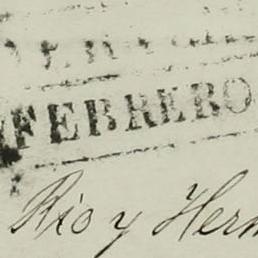 FEBRERO
Rio y Hern